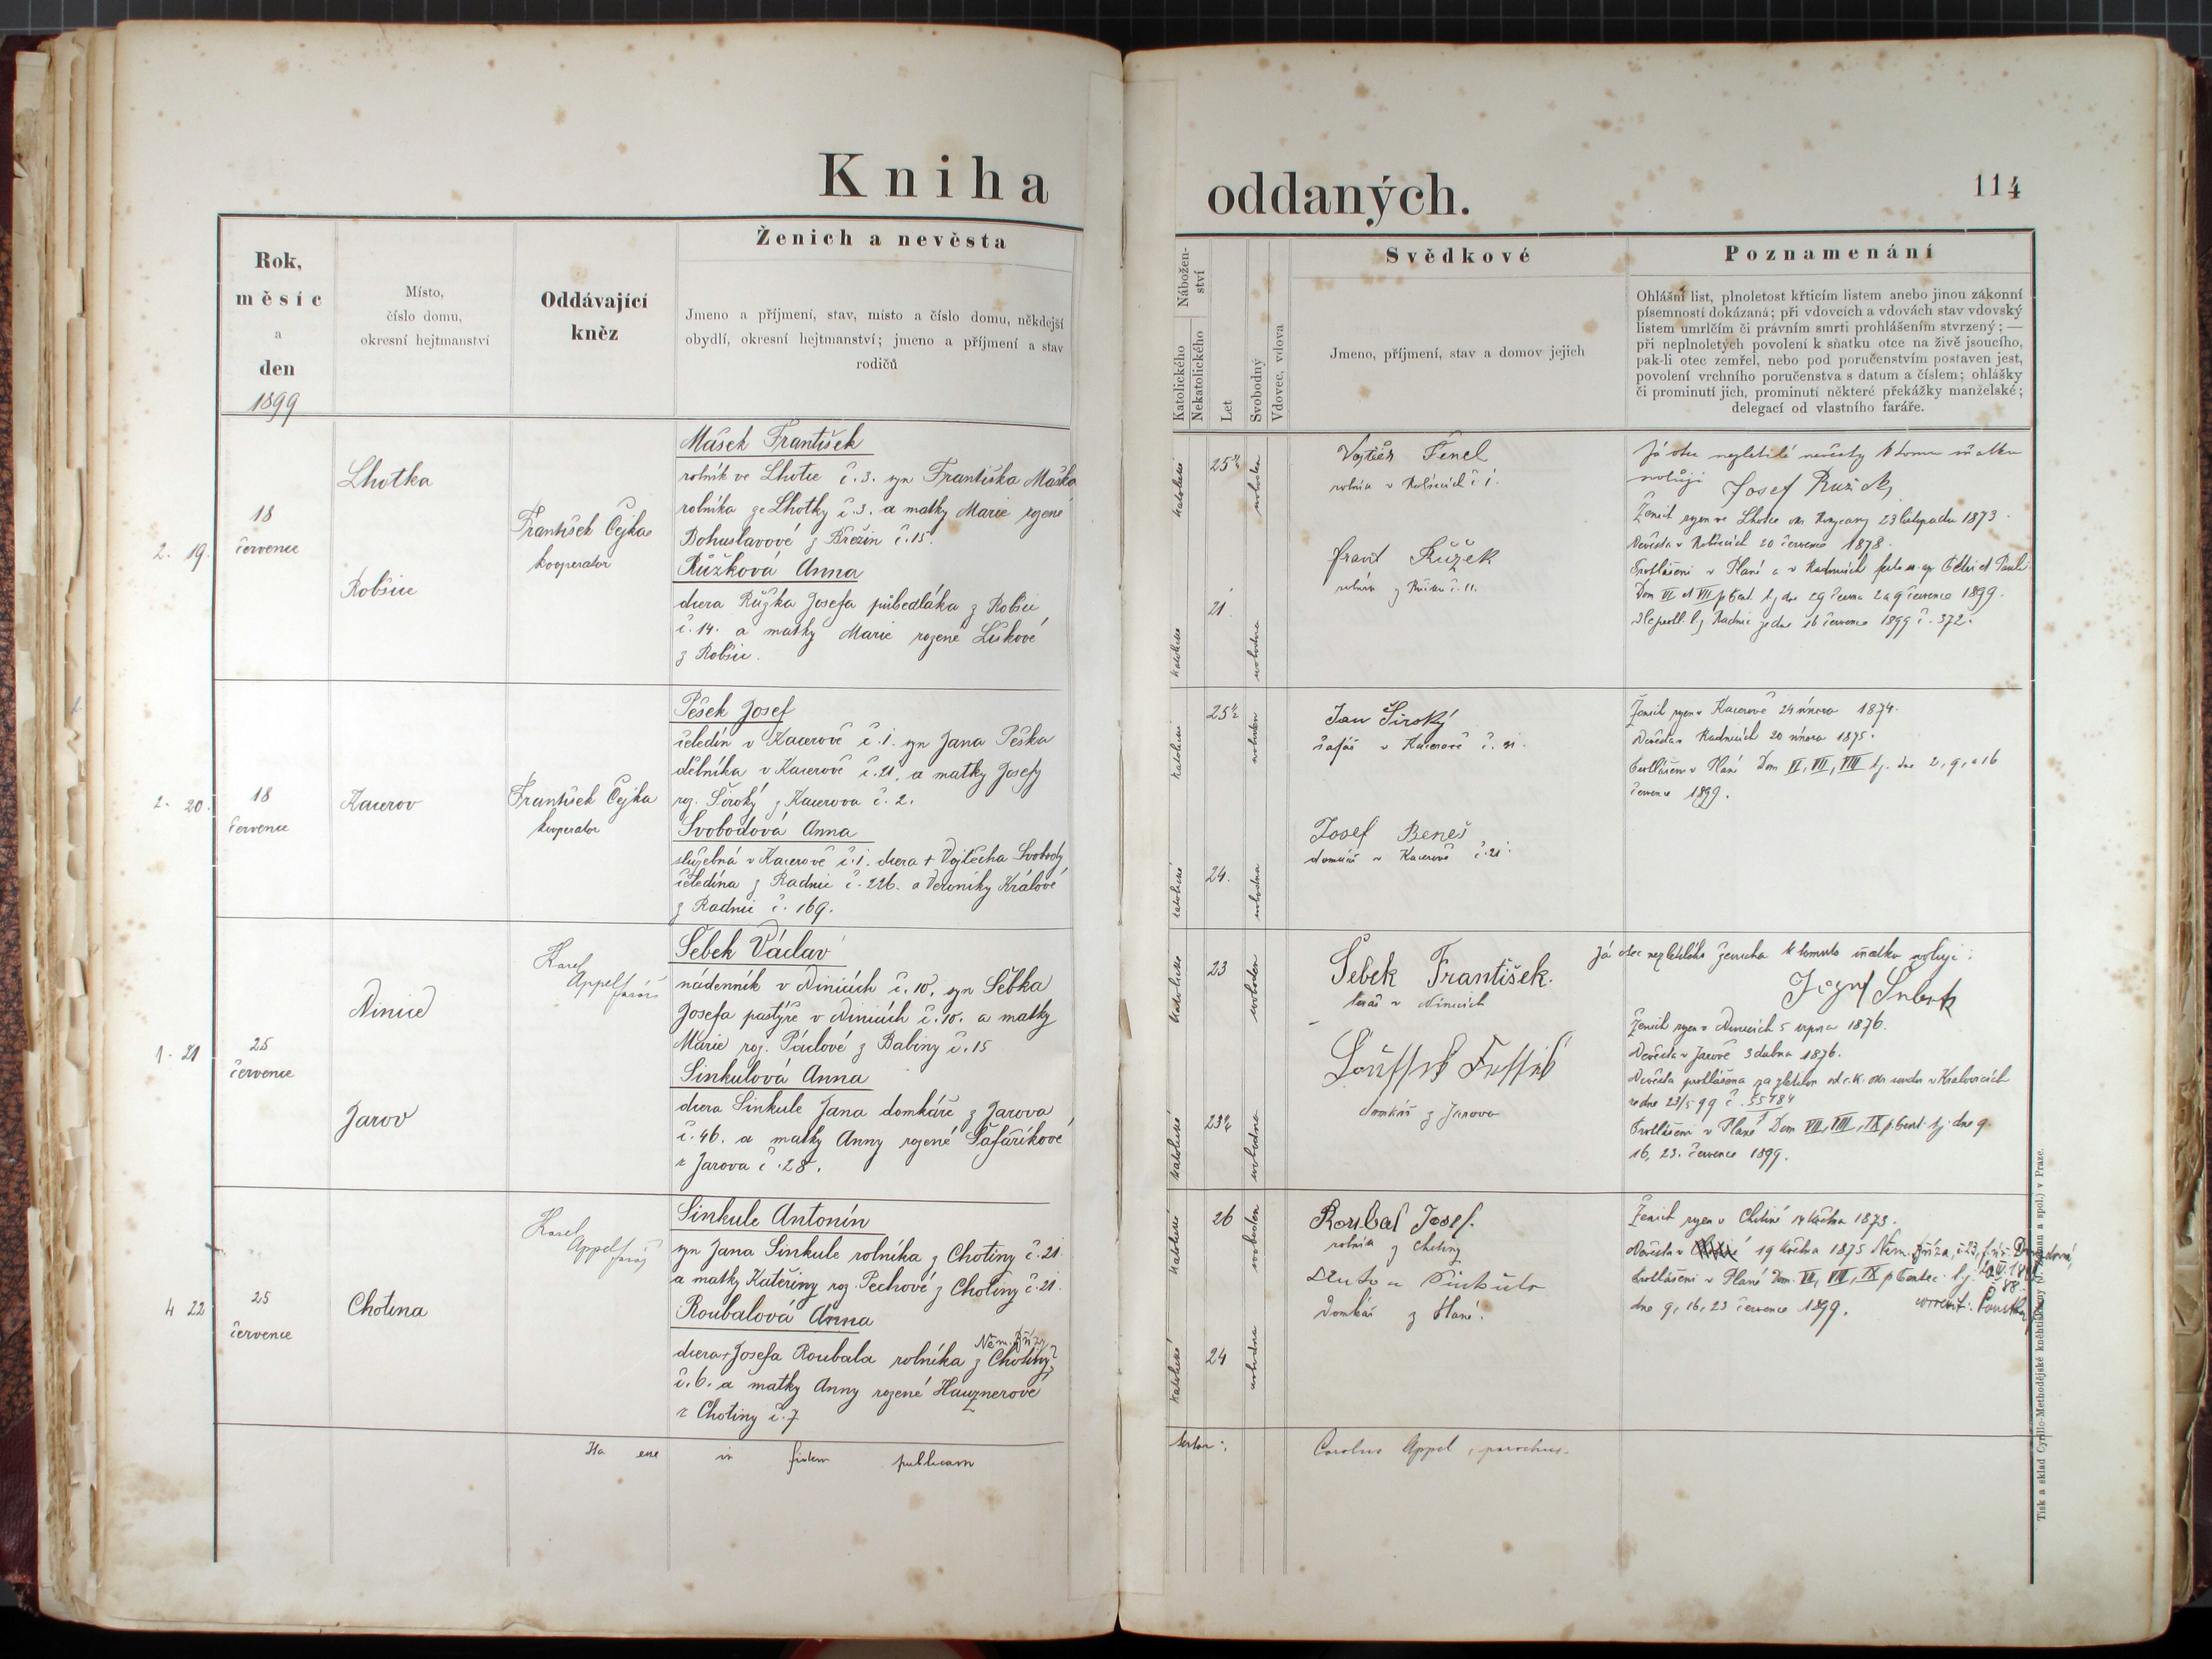 Kniha oddaných.
114
Rok,
měsíc
a
den
1899
Místo,
číslo domu,
okresní hejtmanství
Oddávající
kněz
Ženich a nevěsta
Jmeno a příjmení, stav, místo a číslo domu, někdejší
obydlí, okresní hejtmanství; jmeno a příjmení a stav
rodičů
Nábožen-
ství
Katolického
Nekatolického
Let
Svobodný
Vdovec, vdova
Svědkové
Jmeno, příjmení, stav a domov jejich
Poznamenání
Ohlášní list, plnoletost křticím listem anebo jinou zákonní
písemností dokázaná; při vdovcích a vdovách stav vdovský
listem umrlčím či právním smrti prohlášením stvrzený; —
při neplnoletých povolení k sňatku otce na živě jsoucího,
pak-li otec zemřel, nebo pod poručenstvím postaven jest,
povolení vrchního poručenstva s datum a číslem; ohlášky
či prominutí jich, prominutí některé překážky manželské;
delegací od vlastního faráře.
2. 19.
18
července
Lhotka
Robšice
František Čejka
kooperator
Mášek František
rolník ve Lhotce č. 3. syn Františka Maška
rolníka ze Lhotky č. 3. a matky Marie rozené
Bohuslavové z Březin č. 15.
Růžková Anna
dcera Růžka Josefa půlsedláka z Robšic
č. 14. a matky Marie rozené Liškové
z Robšic.
katolické
25
21.
svobodna
Vojtěch Fencl
rolník v Robšicích č 1.
Růžek
rolník z č. 11.
Já otec nezletilé nevěsty k tomu sňatku
svoluji
Ženich rozen ve Lhotce okr. Rokycany 23 listopadu 1873.
Nevěsta v Robšicích 20 července 1878.
Prohlášeni v Plané a v Radnicích Petri et Pauli
Dom VI et VII p Pent. tj dne 29 června 2 a 9 července 1899.
Radnic ze dne 16 července 1899 č. 372.
2. 20.
18
července
Kacerov
František Čejka
kooperator
Pěšek Josef
čeledín v Kacerově č. 1. syn Jana Pěška
dělníka v Kacerově č. 21. a matky Josefy
roz. Široký z Kacerova č. 2.
Svobodová Anna
služebná v Kacerově č. 1. dcera + Vojtěcha Svobody
čeledína z Radnic č. 226. a Veroniky Králové
z Radnic č. 169.
katolické
25
svoboden
24.
svobodna
Jan Široký
šafář v Kacerově č.
Josef Beneš
domkář v Kacerově č. 21.
Ženich rozen v Kacerově 24 února 1874.
Nevěsta v Radnicích 20 února 1875.
Prohlášen v Plané Dom VI, VII, VIII tj. dne 2, 9, a 16
července 1899.
1. 21
25
července
Ninice
Jarov
Karel
Appel
farář
Šebek Václav
nádenník v Ninicích č. 10. syn Šebka
Josefa pastýře v Ninicích č. 10. a matky
Marie roz. Páclové z Babiny č. 15
Sinkulová Anna
dcera Sinkule Jana domkáře z Jarova
č. 46. a matky Anny rozené Šafaříkové
z Jarova č. 28.
katolické
23
svoboden
svobodna
Šebek František.
v Ninicích
domkář z Jarova
Já otec nezletilého ženicha k tomuto sňatku svoluji:
Ženich rozen v Ninicích 5 srpna 1876.
Nevěsta v Jarově 3 dubna 1876.
Nevěsta prohlášena za zletilou od c. k. okr. soudu v Kralovicích
ze dne 23/5 99 č.
Prohlášeni v Plané Dom VII, VIII, IX p Pent. tj. dne 9.
16, 23. července 1899.
4 22
25
července
Chotina
Karel
Appel
farář
Sinkule Antonín
syn Jana Sinkule rolníka z Chotiny č. 21.
a matky Kateřiny roz. Pechové z Chotiny č. 21.
Roubalová Anna
Něm. Bříza
dcera + Josefa Roubala rolníka z Chotiny
č. 6. a matky Anny rozené Hauznerové
z Chotiny č. 7
katolické
26
svoboden
24
svobodna
Roubal Josef.
rolník z Chotiny
Sinkule
Domkář z Plané.
Ženich rozen v Chotině 14 května 1873.
Nevěsta v 19 května 1875 Něm. Bříza, č. 23,
Prohlášeni v Plané Dom. VII, VIII, IX p Pentec. t. j.
dne 9, 16, 23 července 1899.
Ita esse in fidem publicam testor: Carolus Appel, parochus.
Tisk a sklad Cyrillo-Methodějské knihtiskárny
spol.) v Praze.